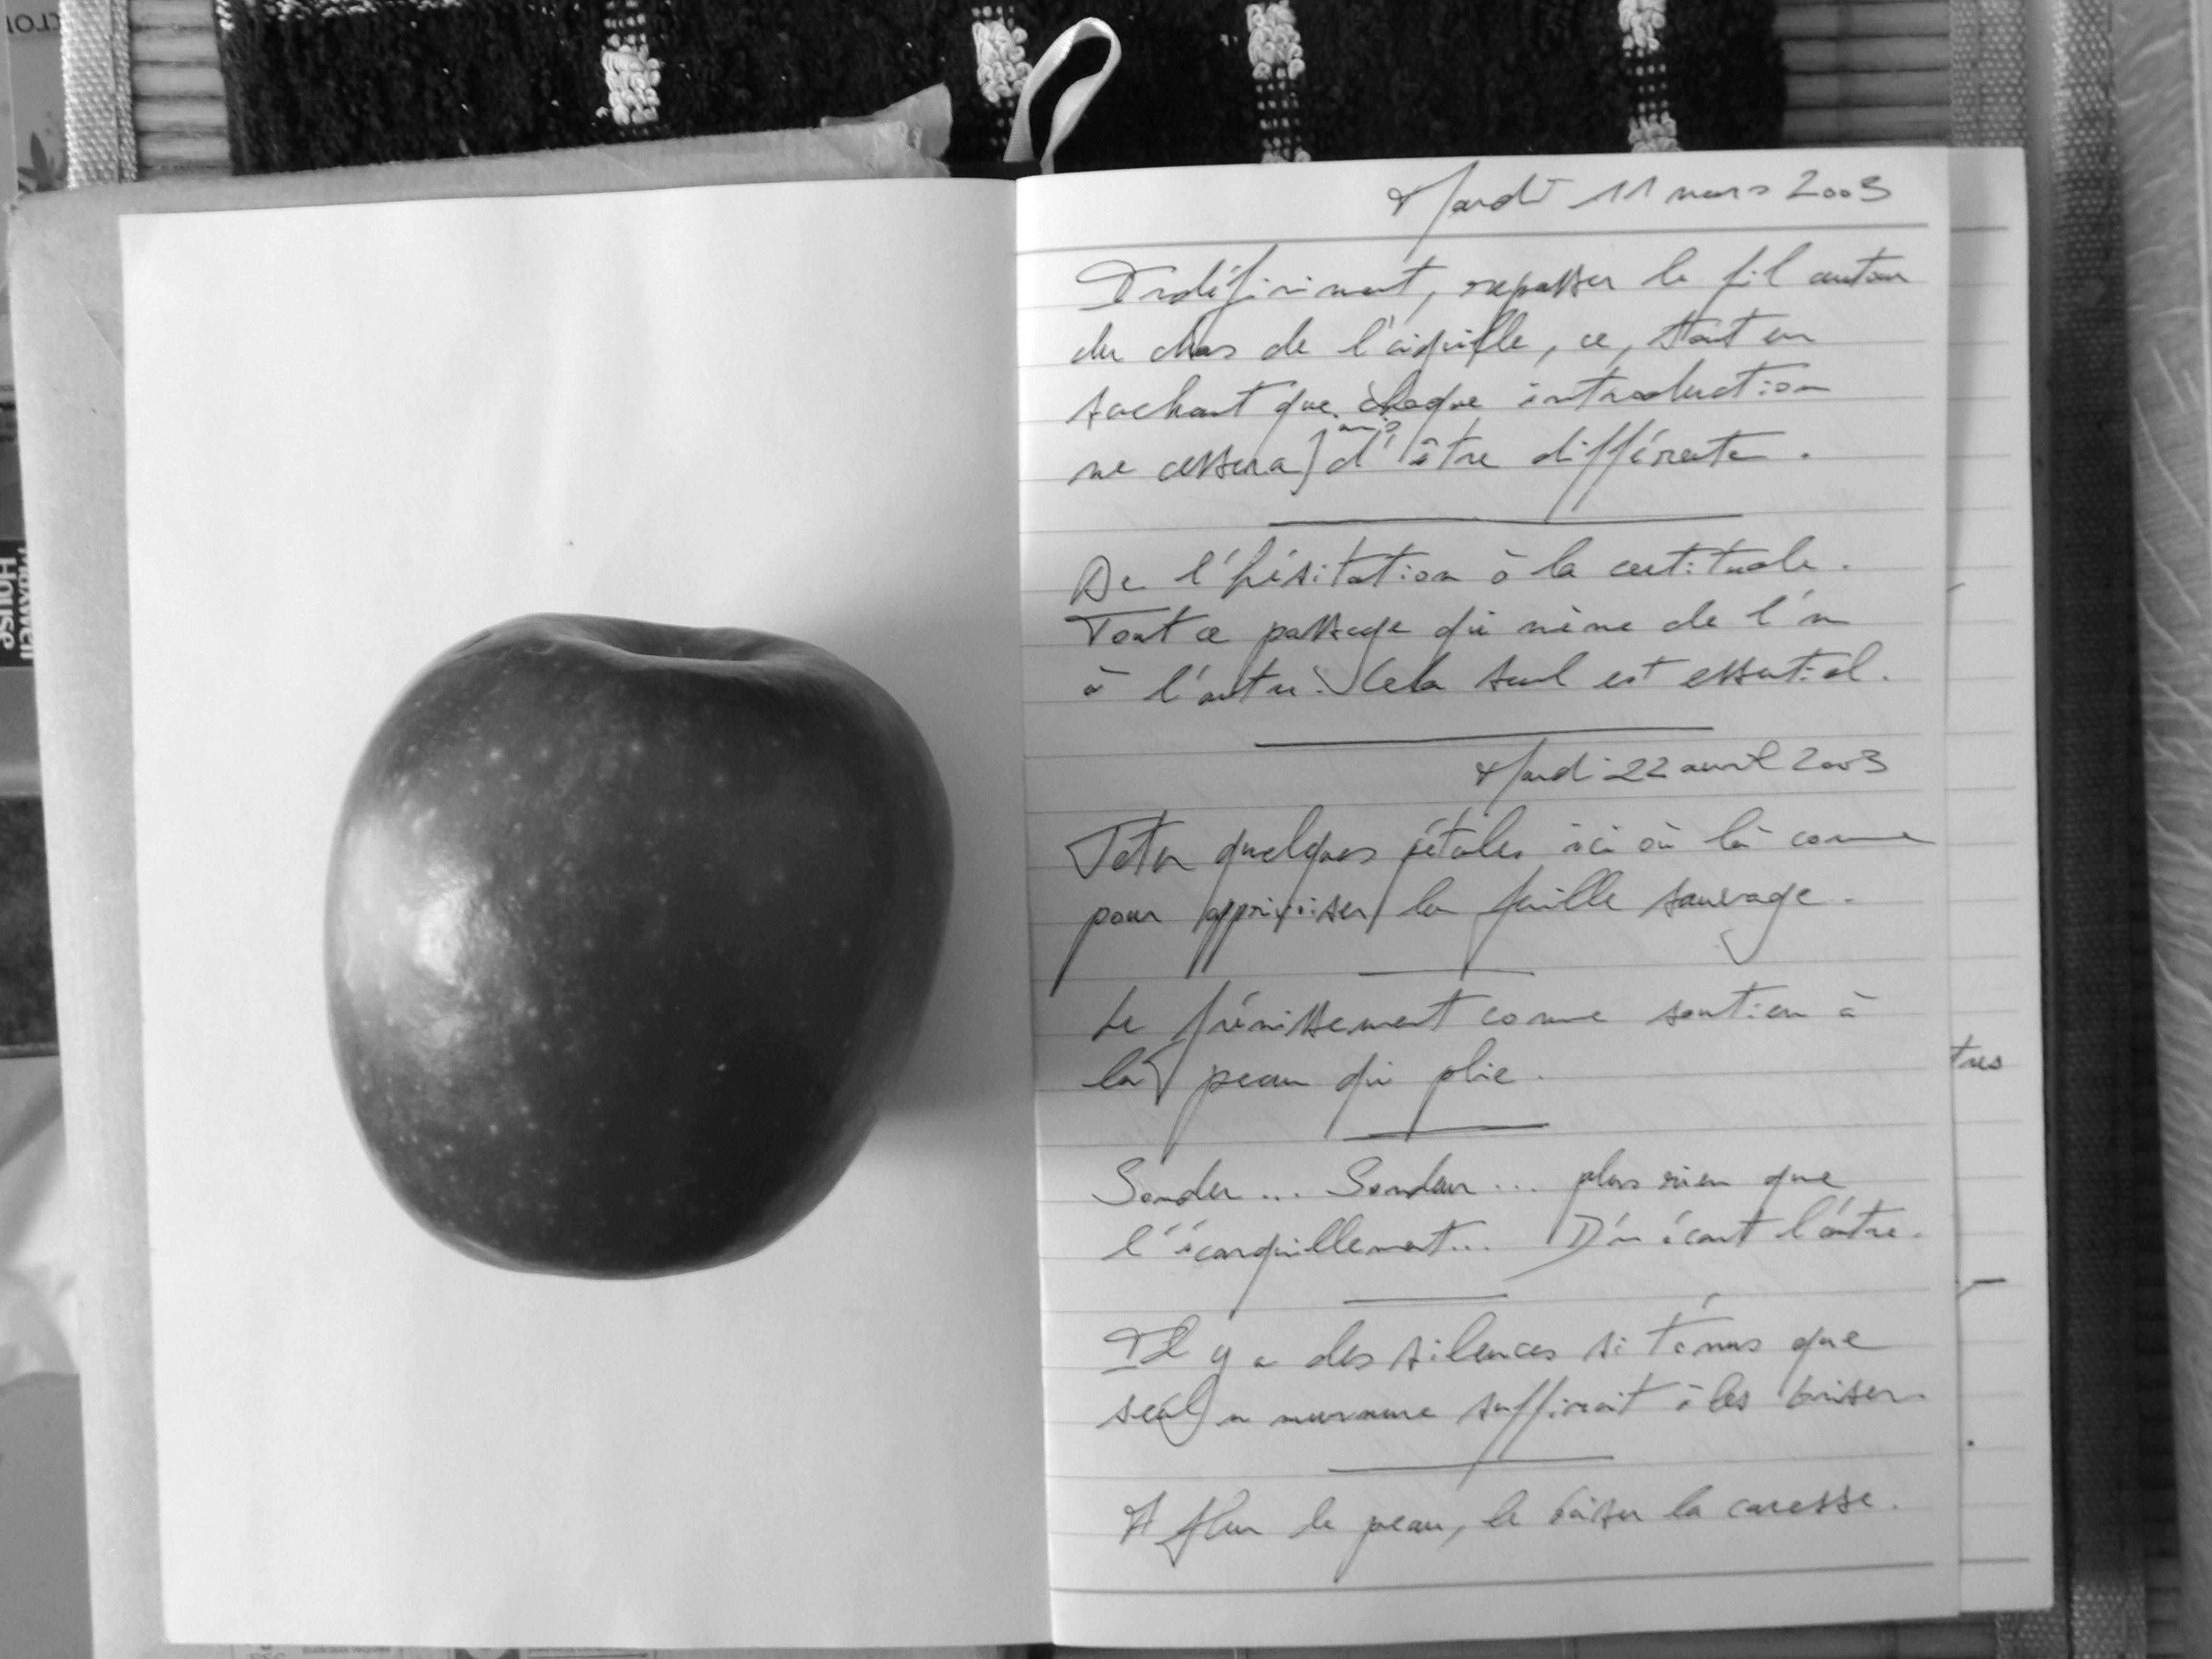 Mardi 11 mars 2003
Indéfiniment, repasser le fil autour
du chas de l'aiguille, ce, tout en
sachant que chaque introduction
ne cessera jamais d'être différente.
De l'hésitation à la certitude.
Tout ce passage qui mène de l'un
à l'autre. Cela seul est essentiel.
Mardi 22 avril 2003
quelques pétales ici où là comme
pour apprivoiser la feuille sauvage.
Le frémissement comme soutien à
la peau qui plie.
Sonder... Sondeur... plus rien que
l'écarquillement... D'un écart l'autre.
Il y a des silences si ténus que
seul un murmure suffirait à les briser.
A fleur de peau, le baiser la caresse.
tres
House